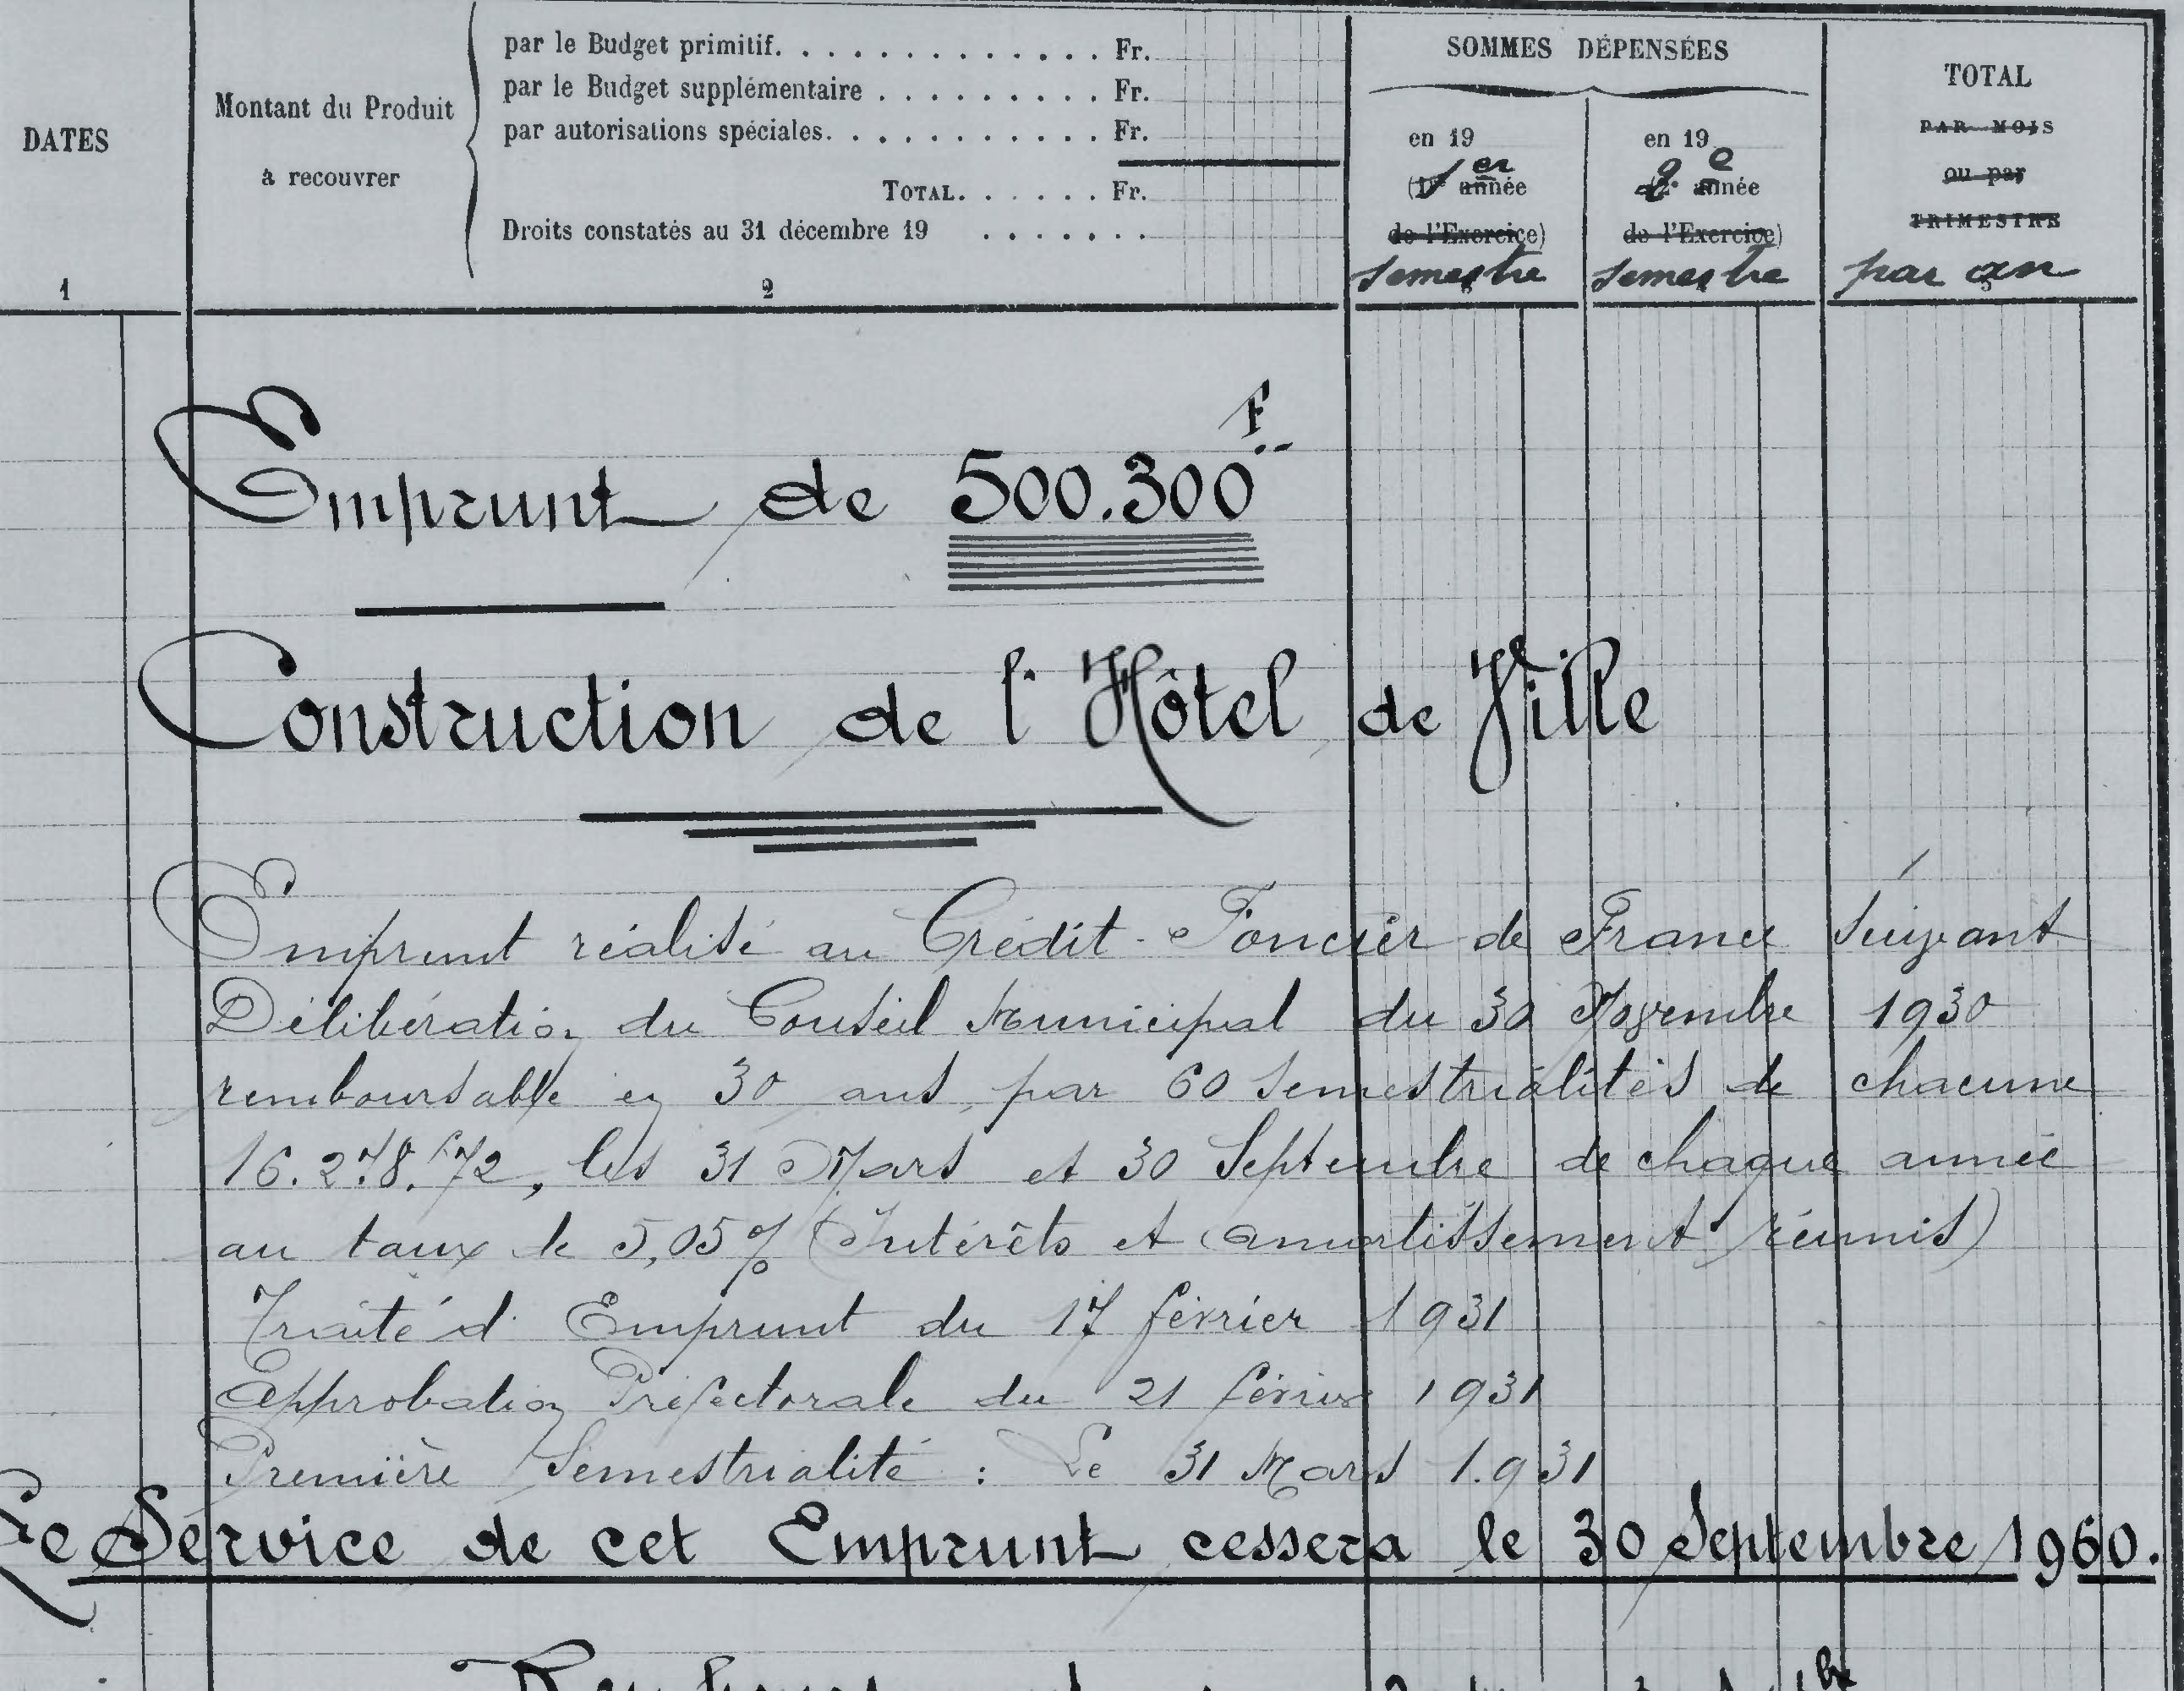 DATES
1
Montant du Produit
à recouvrer
par le Budget primitif. . . . . . . . . . . . . . Fr.
par le Budget supplémentaire . . . . . . . . . . Fr.
par autorisations spéciales. . . . . . . . . . . . Fr.
TOTAL. . . . . . Fr.
Droits constatés au 31 décembre 19 . . . . . . .
2
SOMMES DÉPENSÉES
en 19
1er année
de l'Exercice)
semestre
en 19
2e année
de l'Exercice)
semestre
TOTAL
PAR MOIS
ou par
TRIMESTRE
par an
Emprunt de 500.300F
Construction de l'Hôtel de Ville
Emprunt réalisé au Crédit-Foncier de France suivant
Délibération du Conseil Municipal du 30 Novembre 1930
remboursable en 30 ans, par 60 semestrialités de chacune
16.278.f72, les 31 Mars et 30 Septembre de chaque année
au taux de 5,05% (Intérêts et amortissement réunis)
Traité d'Emprunt du 17 février 1931
Approbation Préfectorale du 21 février 1931
Première Semestrialité : Le 31 Mars 1.931
Le Service de cet Emprunt cessera le 30 Septembre 1960.